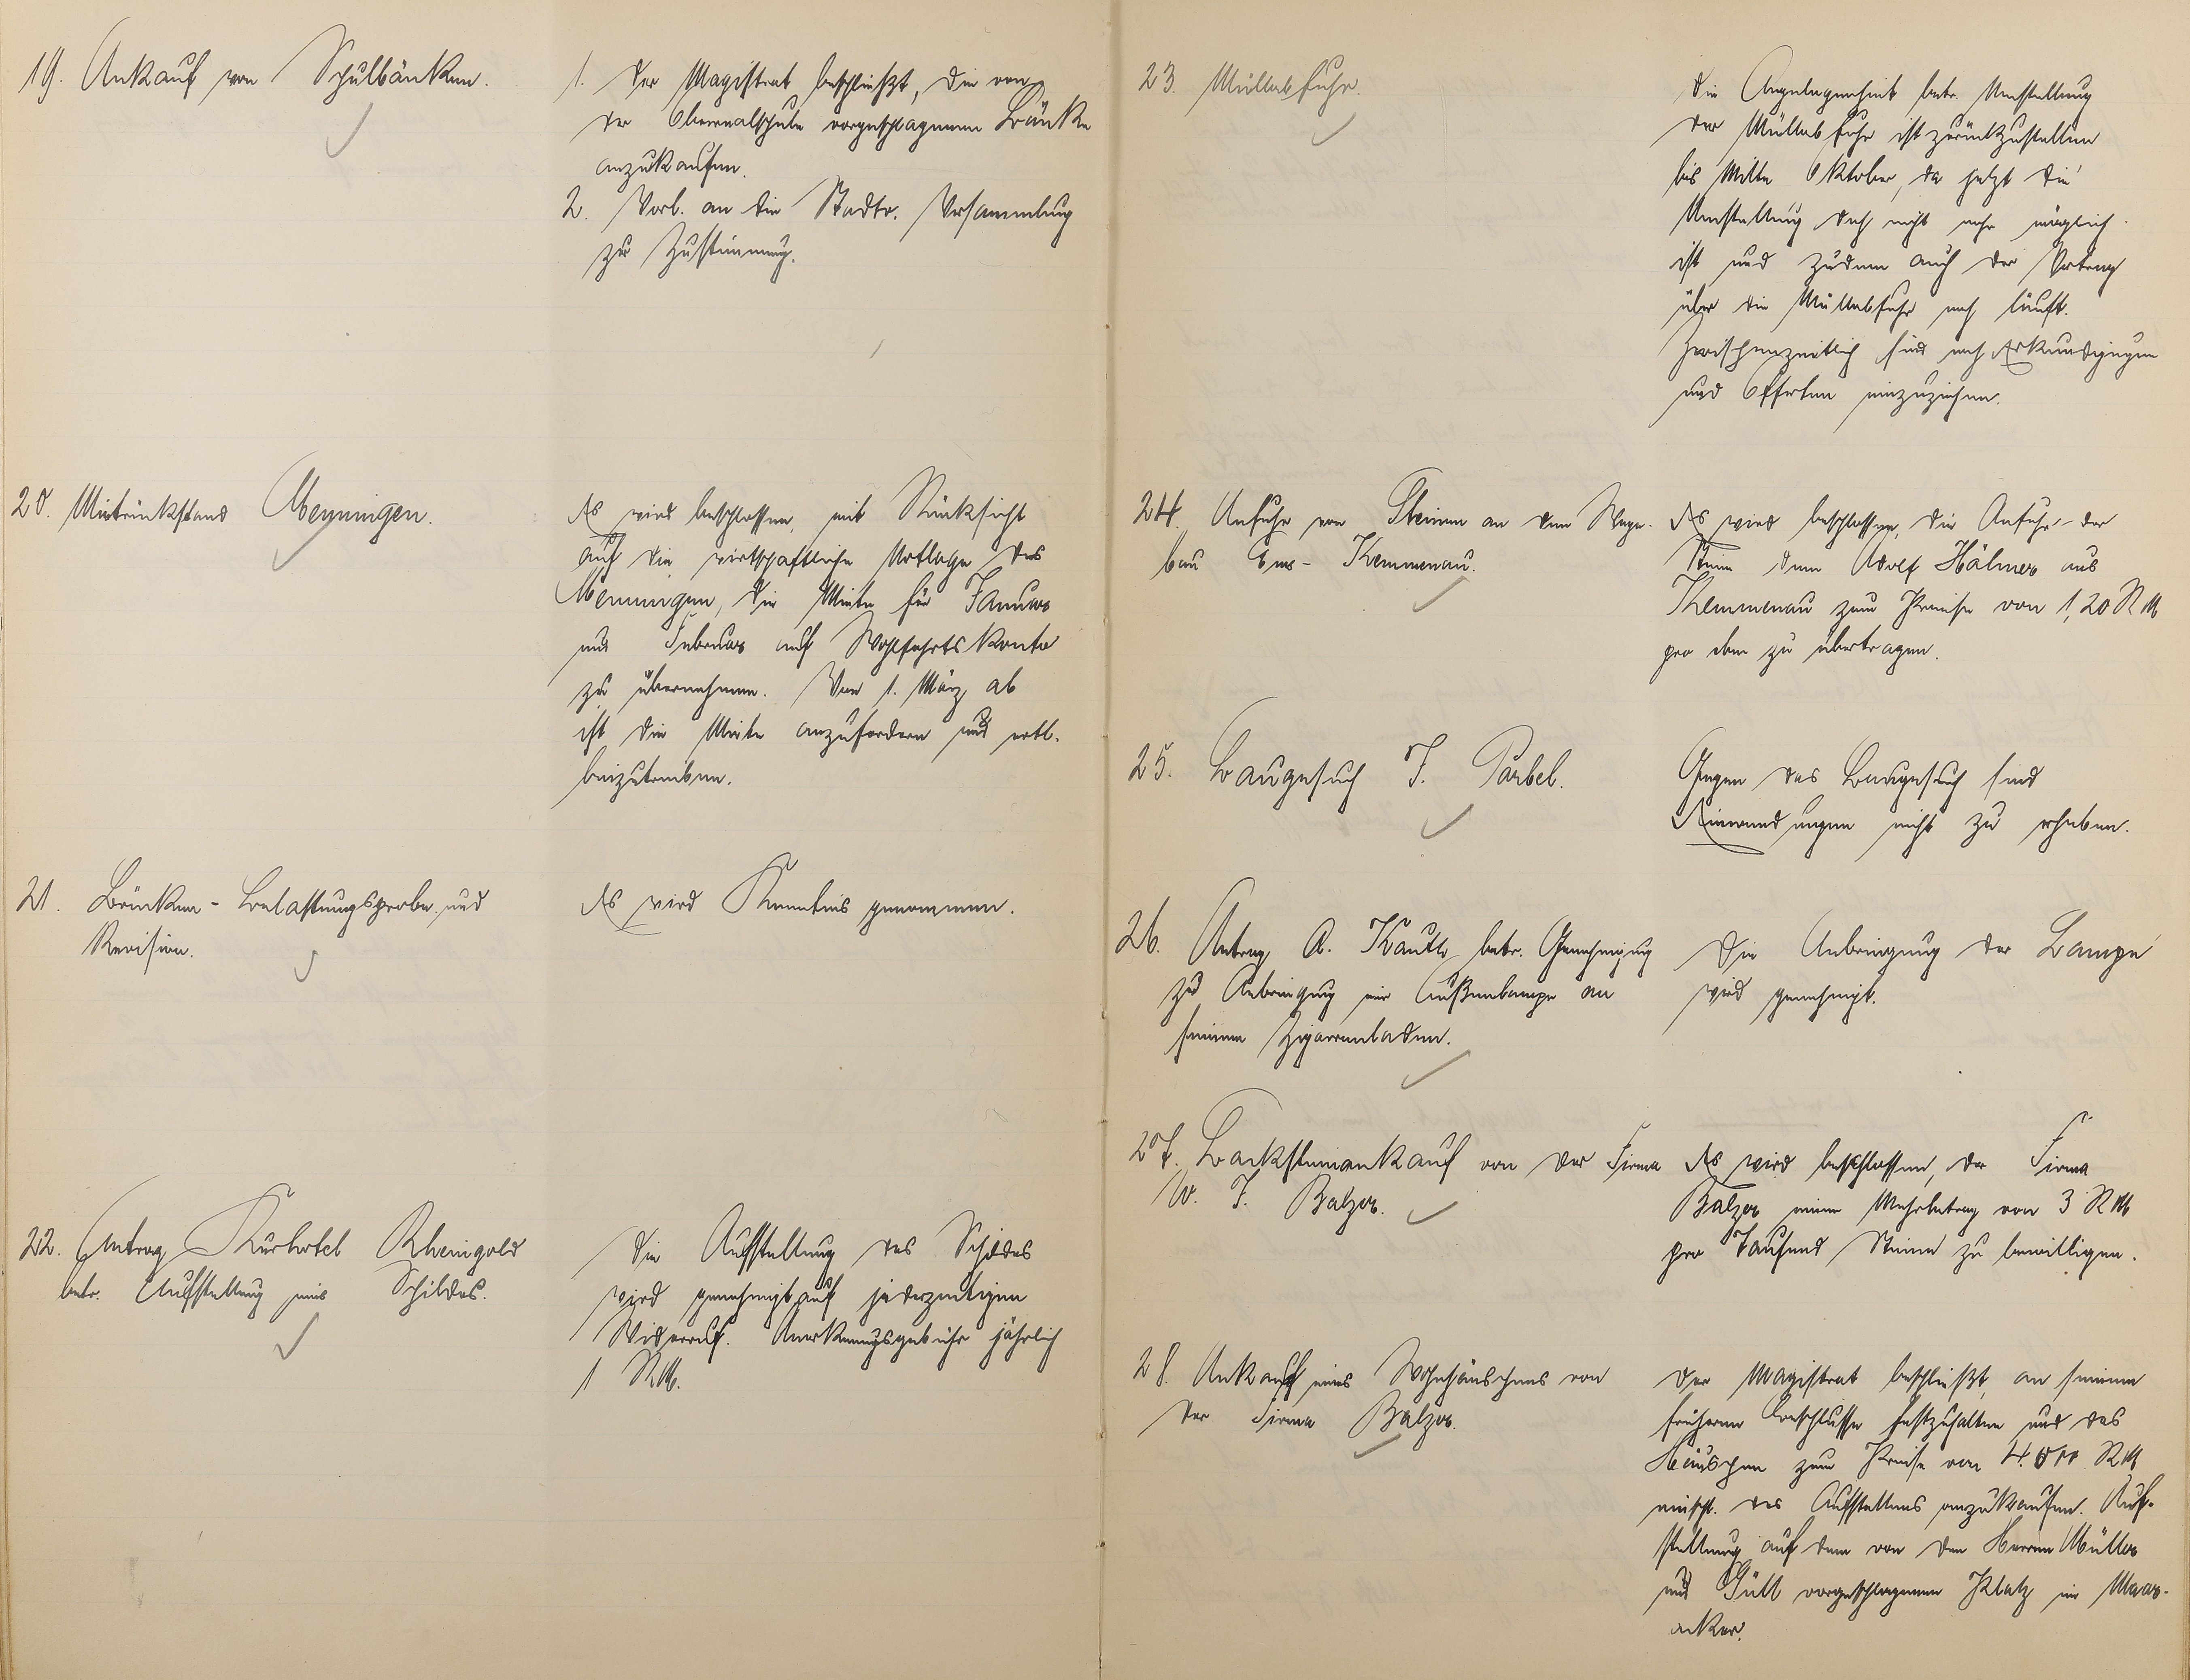 19. Ankauf von Schulbänken.
1. Der Magistrat beschließt, die von
der Oberrealschule vorgeschlagenen Bänke
anzukaufen.
2. Vorl. an die Stadtv. Versammlung
zur Zustimmung.
20. Mietrückstand
Es wird beschlossen, mit Rücksicht
auf die wirtschaftliche Notlage des
die Miete für Januar
und Februar auf Wohlfahrtskonto
zu übernehmen. Vom 1. März ab
ist die Miete anzufordern und evtl.
beizutreiben.
21. Brücken-Belastungsprobe und
Revision.
Es wird Kenntnis genommen.
22. Antrag Kurhotel Rheingold
betr. Aufstellung eines Schildes.
Die Aufstellung des Schildes
wird genehmigt auf jederzeitigen
Widerruf. Anerkennungsgebühr jährlich
1 RM.
23. Müllabfuhr.
Die Angelegenheit betr. Umstellung
der Müllabfuhr ist zurückzustellen
bis Mitte Oktober, da jetzt die
Umstellung doch nicht mehr möglich
ist und zudem auch der Vertrag
über die Müllabfuhr noch läuft.
Zwischenzeitlich sind noch Erkundigungen
und Offerten einzuziehen.
24. Anfuhr von Steinen an den Wege-
bau Ems-Kemmenau.
Es wird beschlossen, die Anfuhr der
Steine dem Adolf aus
Kemmenau zum Preise von 1,20 RM
pro cbm zu übertragen.
25. Baugesuch J. Parbel.
Gegen das Baugesuch sind
Einwendungen nicht zu erheben.
26. Antrag A. Kauth betr. Genehmigung
zur Anbringung einer Außenlampe an
seinem Zigarrenladen.
Die Anbringung der Lampe
wird genehmigt.
27. Backsteinankauf von der Firma
W. J. Balzer.
Es wird beschlossen, der Firma
Balzer einen Mehrbetrag von 3 RM
pro Tausend Steine zu bewilligen.
28. Ankauf eines Wohnhäuschens von
der Firma Balzer.
Der Magistrat beschließt, an seinem
früheren Beschlusse festzuhalten und das
Häuschen zum Preise von 4.000 RM
einschl. des Aufstellens anzukaufen. Auf-
stellung auf dem von den Herren Müller
und vorgeschlagenen Platz im Maar-
acker.